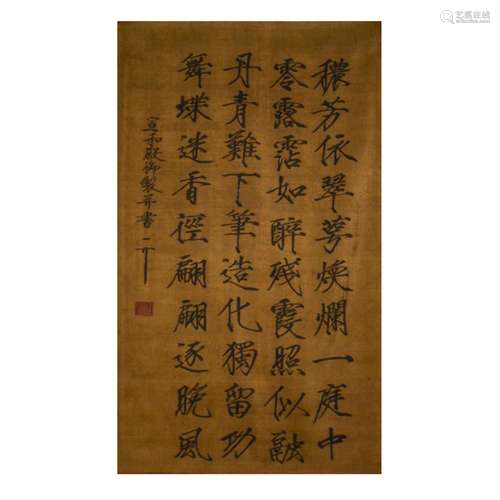 穠芳依翠萼煥爛一庭中
零露霑如醉残霞照似融
丹青難下筆造化獨留功
舞蝶迷香徑翩翩逐晚風
宣和殿御製并書